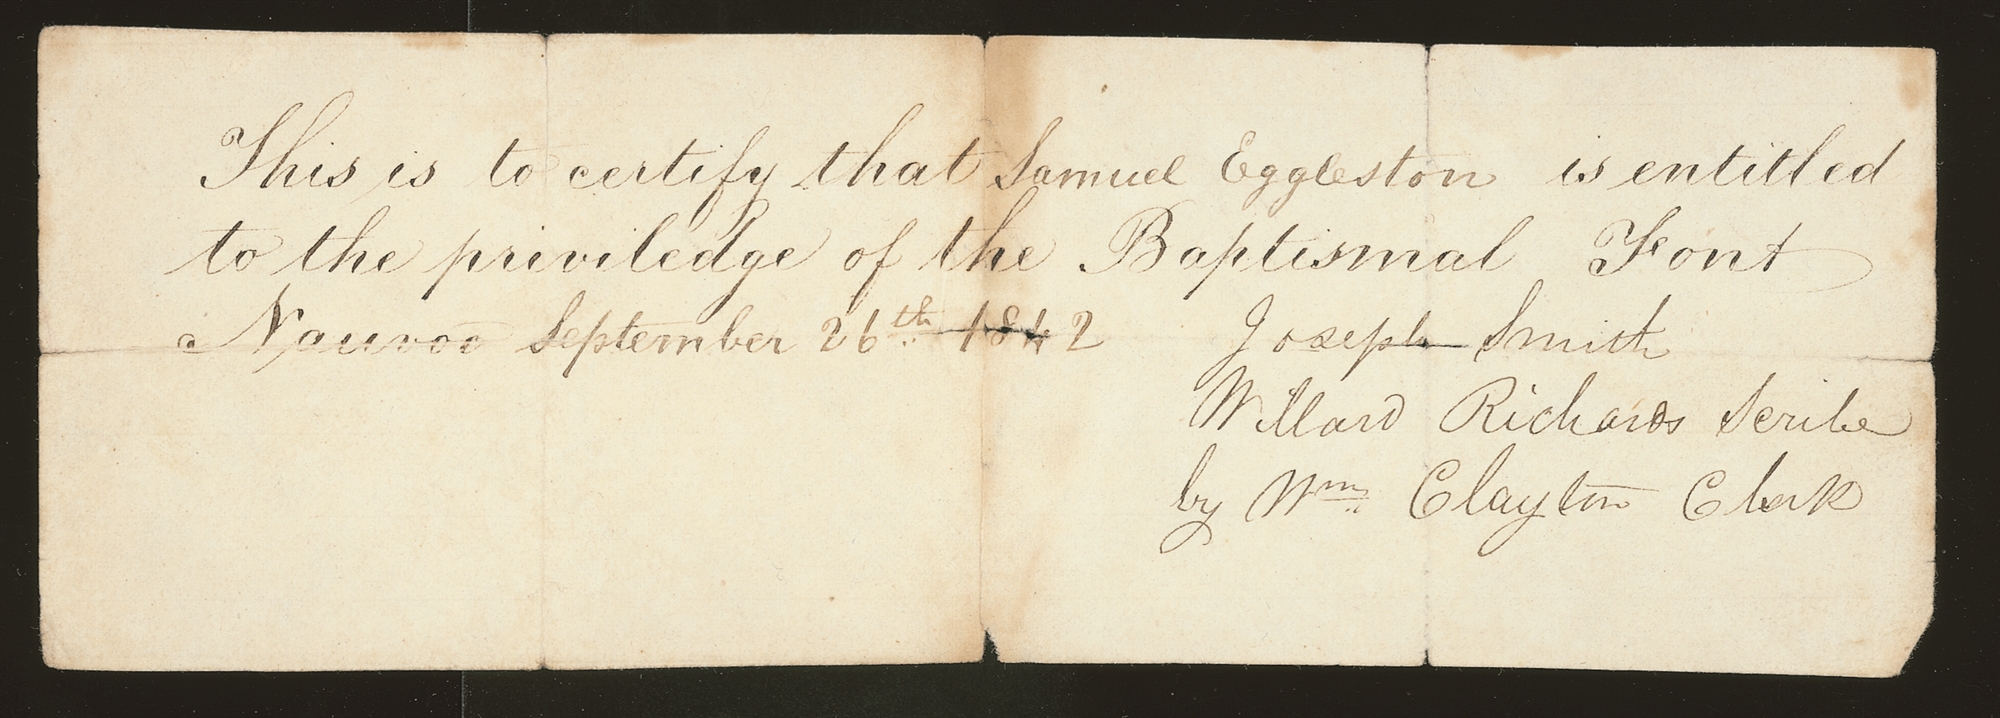 This is to certify that Samuel Eggleston is entitled
to the priviledge of the Baptismal Font
Nauvoo September 26th 1842 Joseph Smith
Willard Richards Scribe
by Wm Clayton Clerk